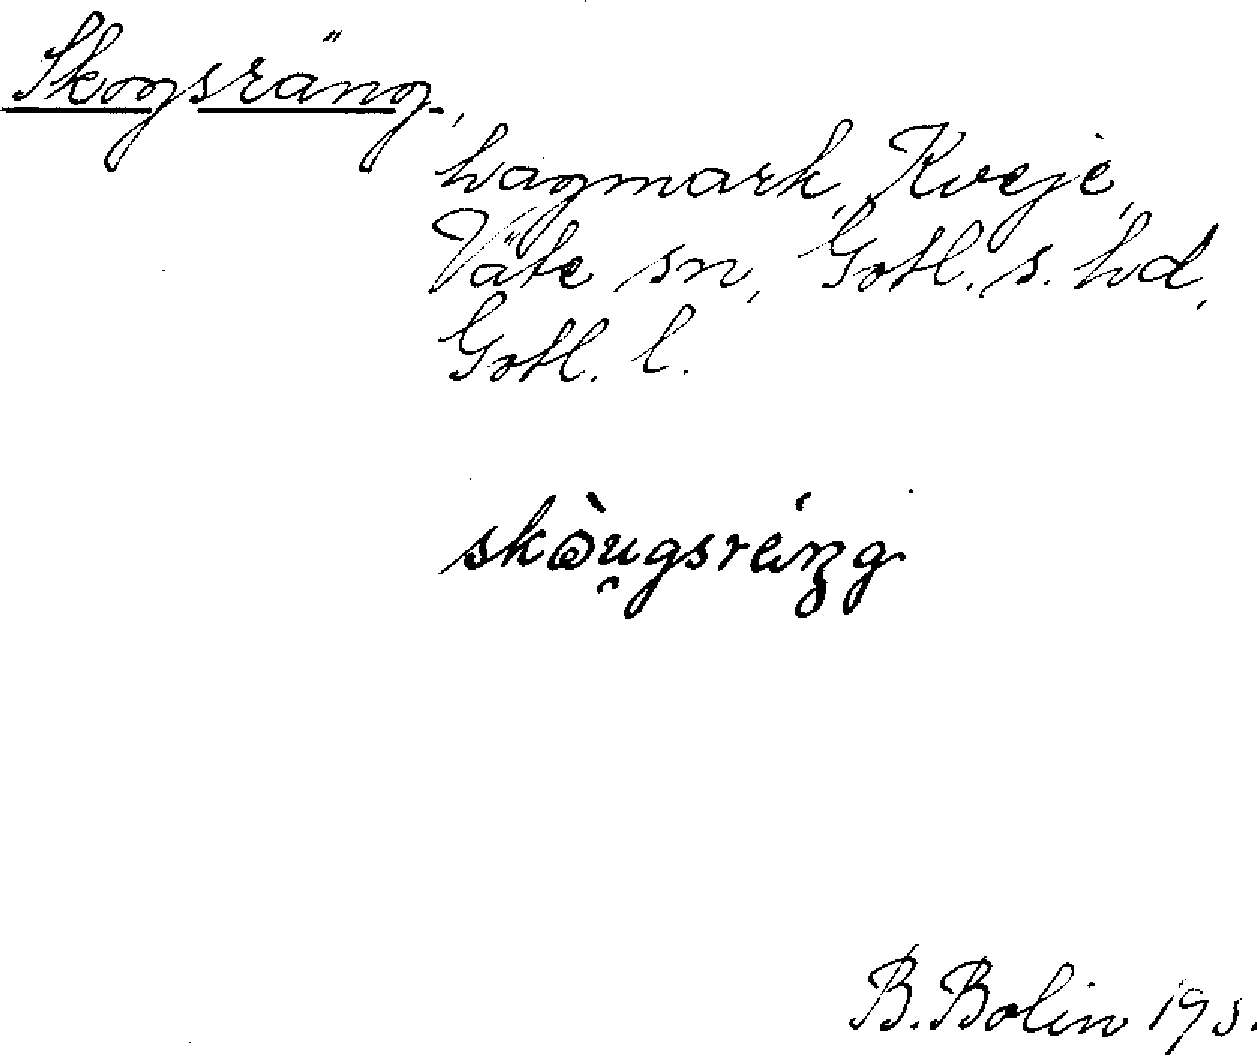 Skogsräng,
hagmark, Kveje,
Väte sn, Gotl. s. hd,
Gotl. l.
skòu̯gsräŋg
B. Bolin 19